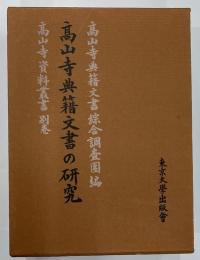 高山寺典籍文書綜合調査團編
高山寺典籍文書の研究
高山寺資料叢書 別巻
東京大學出版會